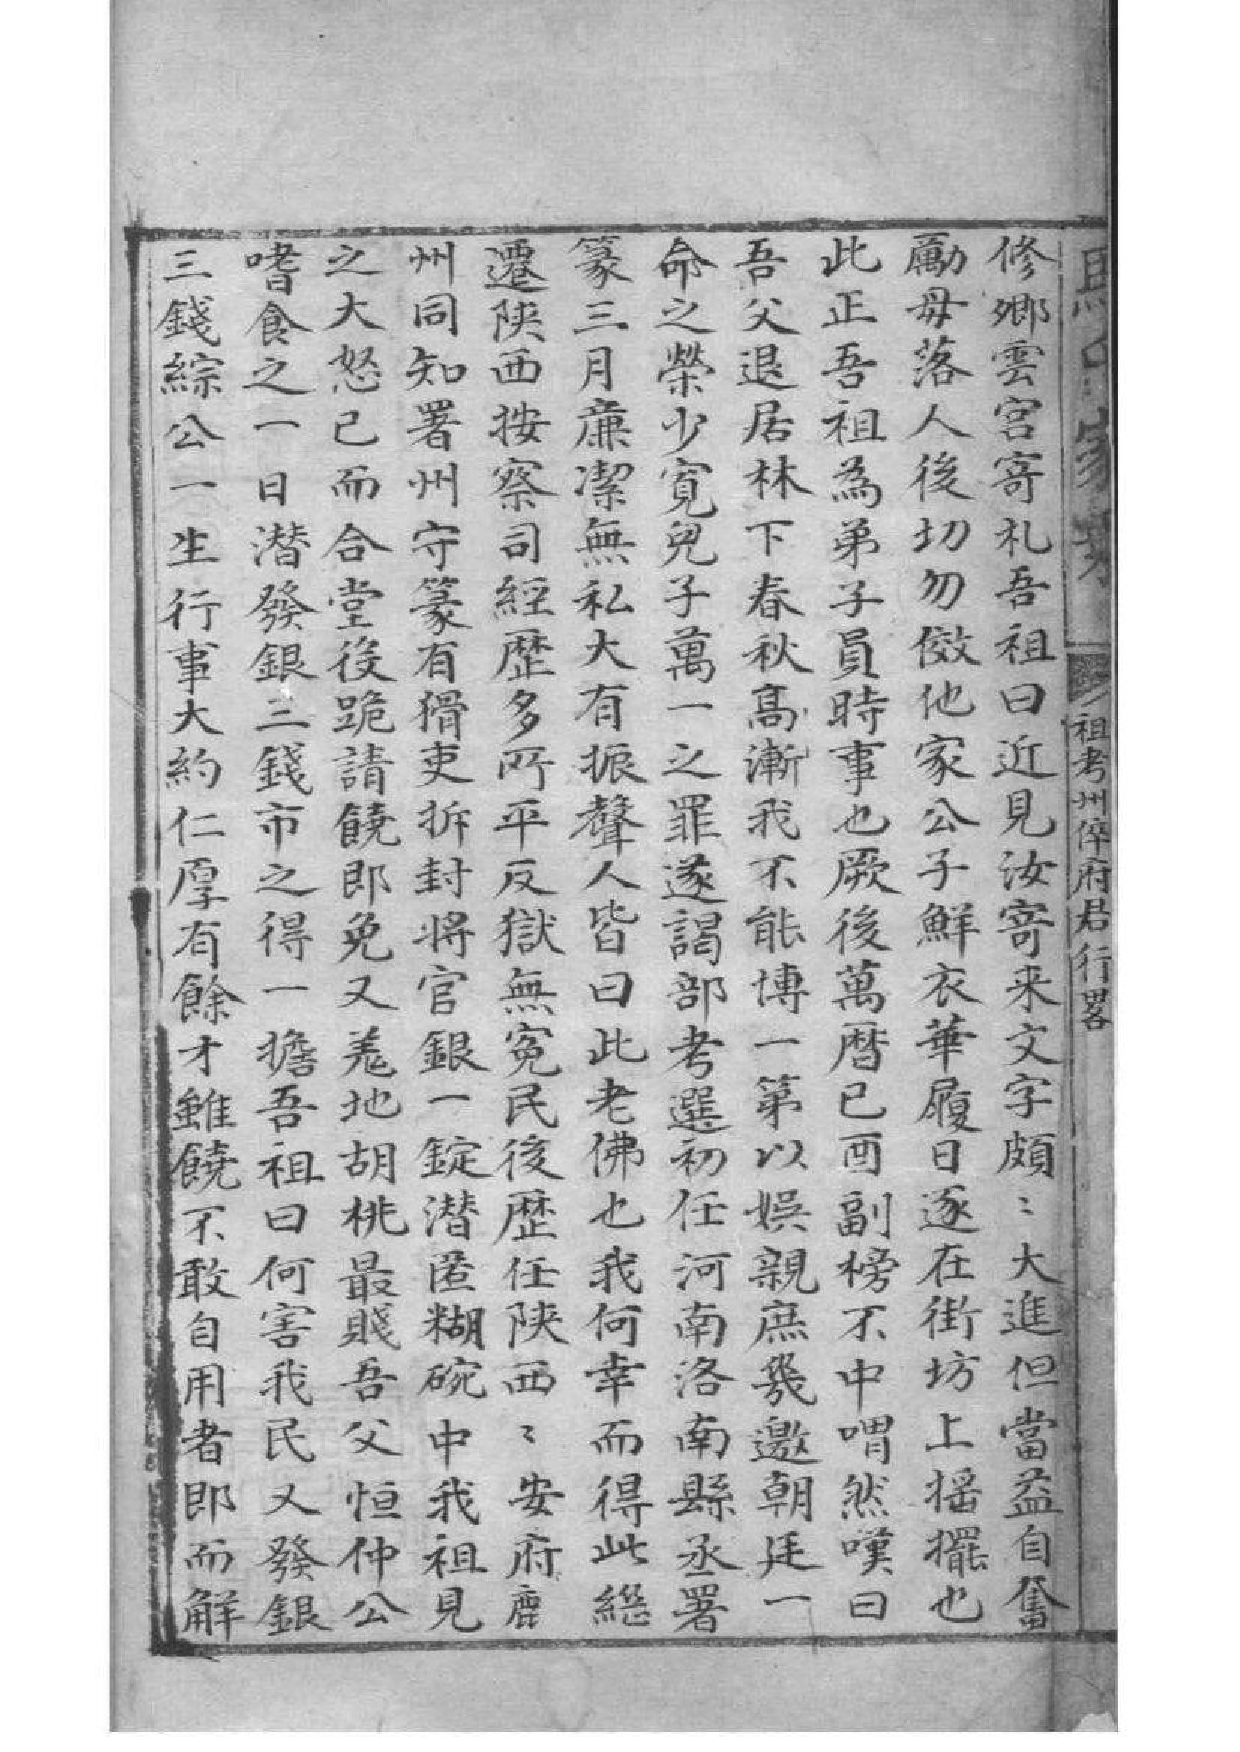 修鄉雲宮寄札吾祖曰近見汝寄来文字頗〻大進但當益自奮
勵毋落人後切勿傚他家公子鮮衣華履日逐在街坊上摇擺也
此正吾祖為弟子員時事也厥後萬曆己酉副榜不中喟然嘆曰
吾父退居林下春秋髙漸我不能博一第以娯親庶㡬邀朝廷一
命之榮少寛兒子萬一之罪遂謁部考選初任河南洛南縣丞署
篆三月廉潔無私大有振聲人皆曰此老佛也我何幸而得此緫
遷陕西按察司經歷多所平反獄無寃民後歴任陕西〻安府鹿
州同知署州守篆有猾吏拆封將官銀一錠潜匿糊碗中我祖見
之大怒已而合堂後跪請饒即免又羗地胡桃最賤吾父恒仲公
嗜食之一日潜發銀三錢市之得一擔吾祖曰何害我民又發銀
三錢綜公一生行事大約仁厚有餘才雖饒不敢自用者即而解
家
祖考州倅府君行畧